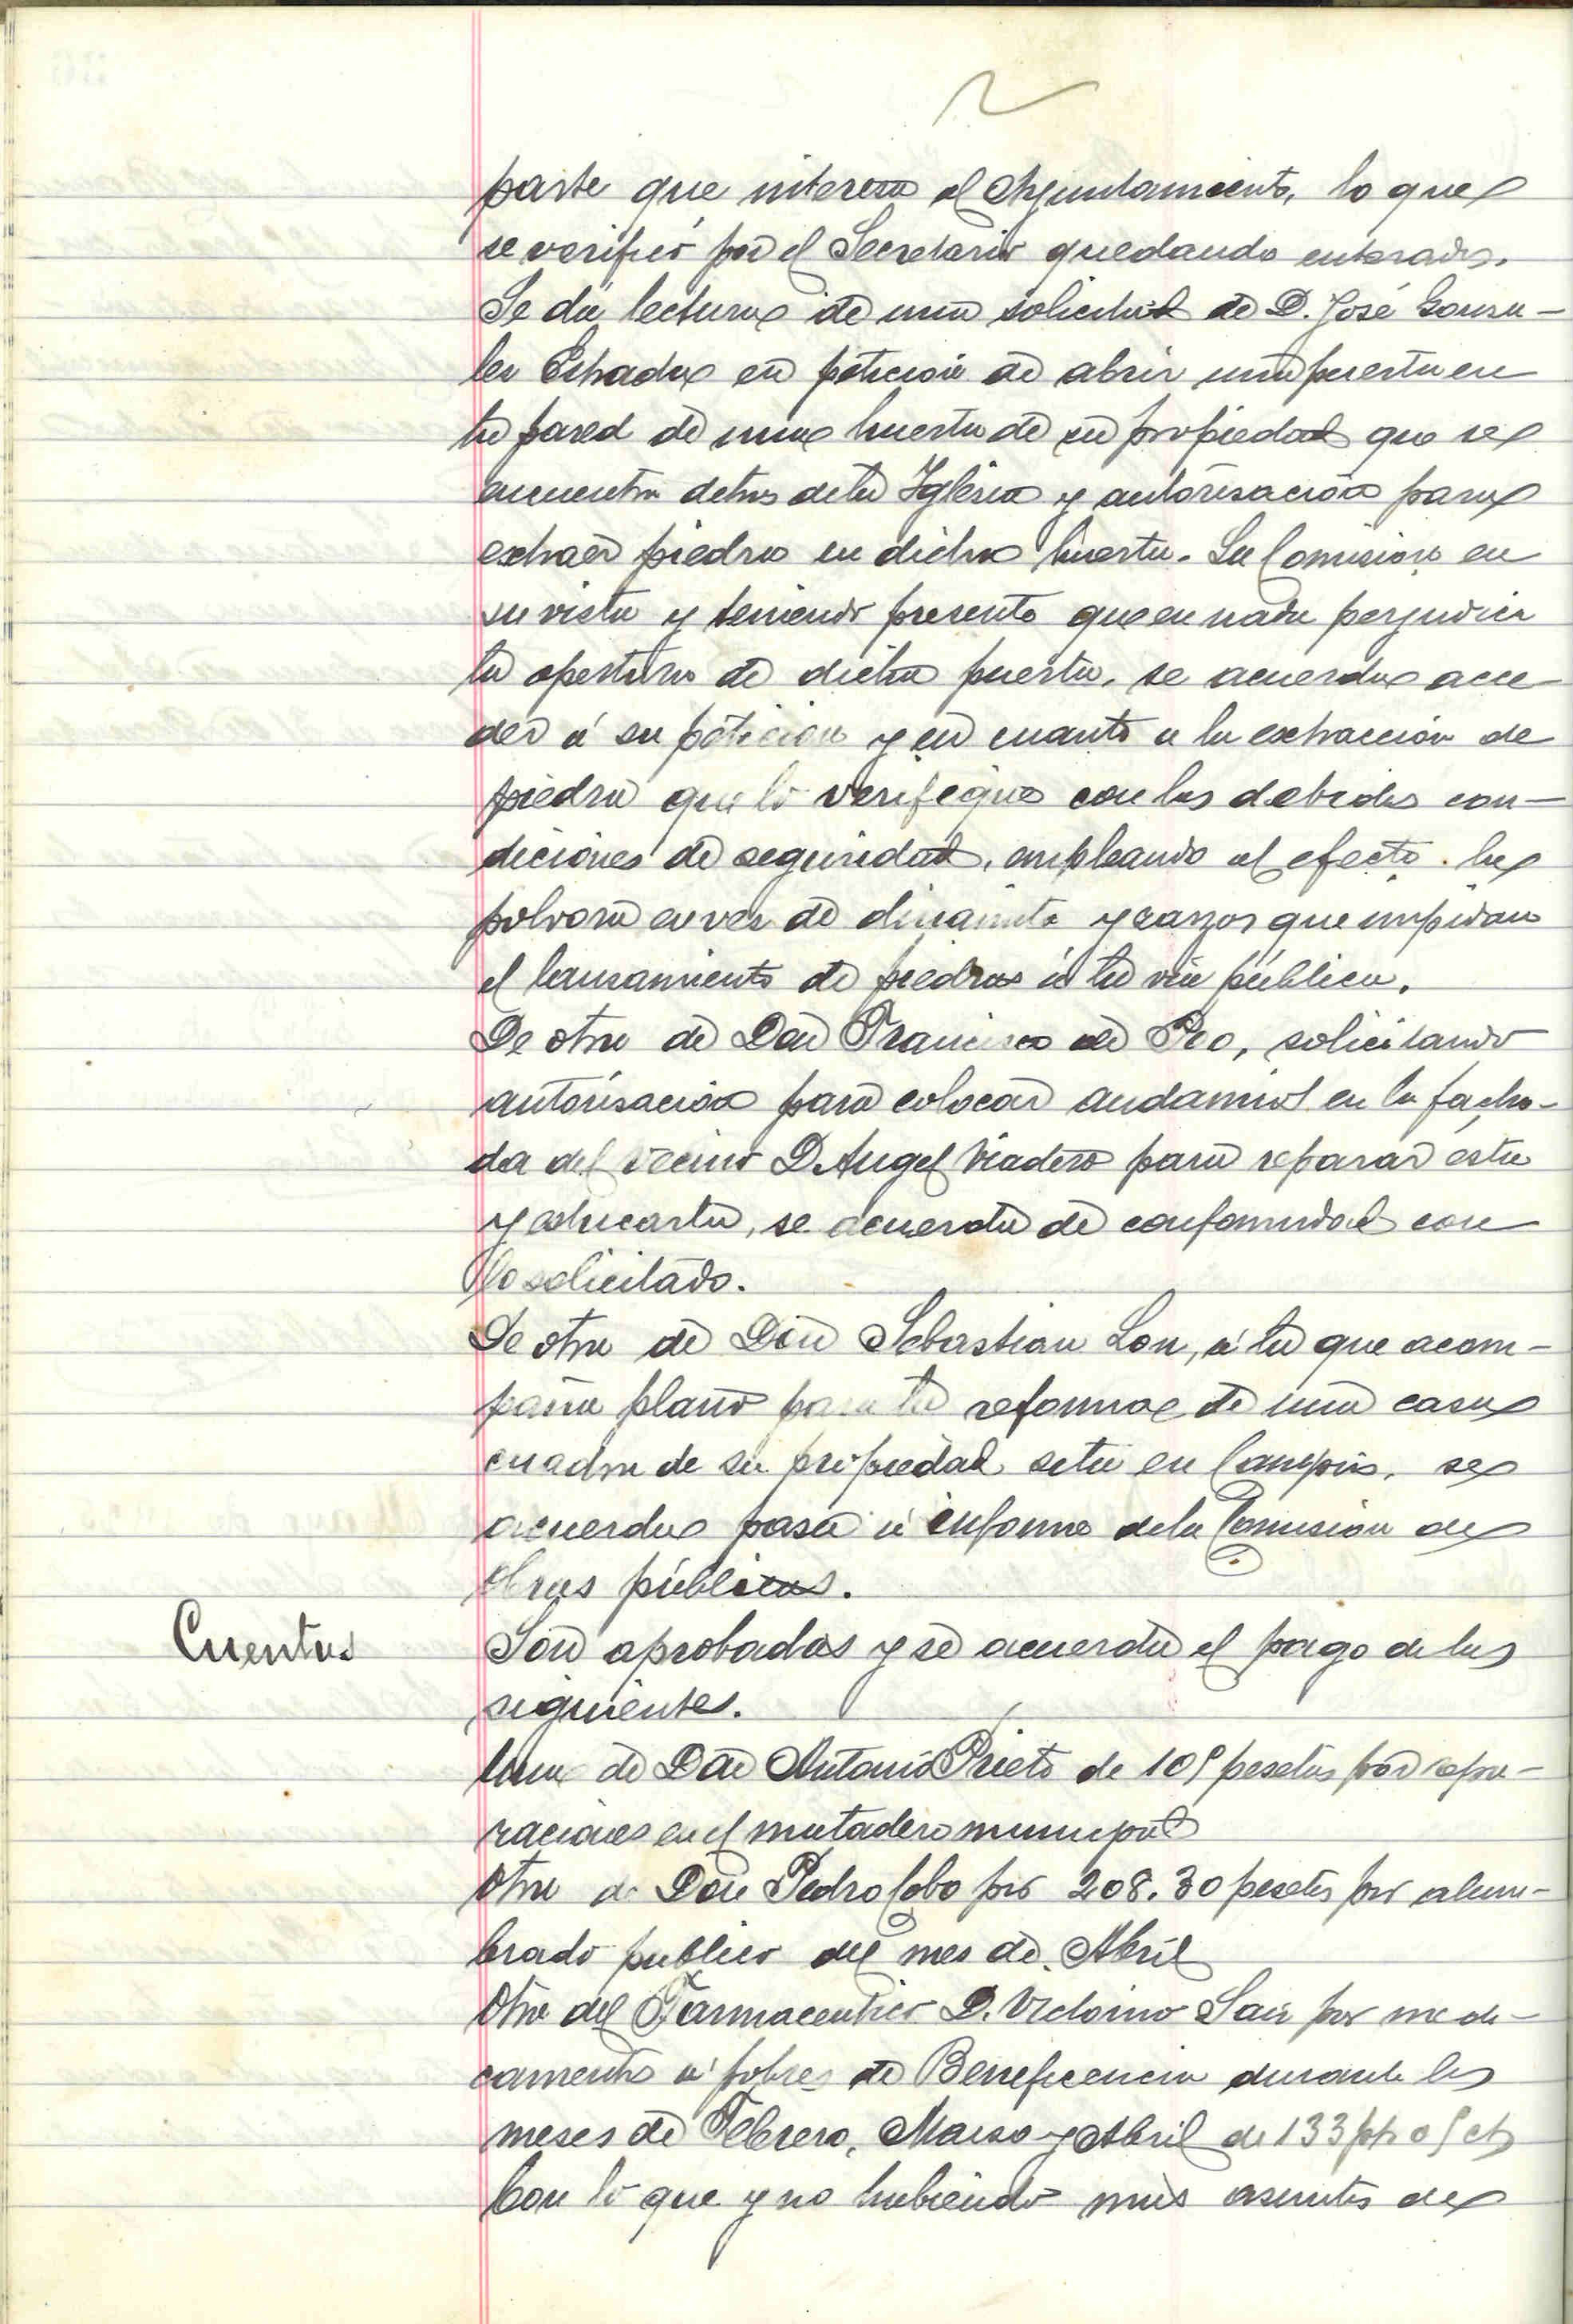 parte que interesa al Ayuntamiento, lo que
se verificó por el Secretario quedando enterados.
Se dá lectura de una solicitud de D. José Gonza-
lez Estrada en petición de abrir una puerta en
la pared de una huerta de su propiedad que se
encuentra detras de la Iglesia y autorisación para
extraer piedra en dicha huerta. La Comision en
su vista y teniendo presente que en nada perjudica
la apertura de dicha puerta, se acuerda acce-
der á su petición y en cuanto a la extracción de
piedra que lo verifique con las debidas con-
diciones de seguridad, empleando al efecto la
polvora en vez de dinamita y zarzos que impidan
el lanzamiento de piedras á la via pública.
De otra de Don Francisco de Peo, solicitando
autorisación para colocar andamios en la facha-
da del vecino D. Angel Viadero para reparar esta
y estucarla, se acuerda de conformidad con
lo solicitado.
De otra de Don Sebastian Lon, á la que acom-
paña plano para la reforma de una casa
cuadra de su propiedad sita en Campias, se
acuerda pasa á informe de la Comision de
Obras públicas.
Cuentas
Son aprobadas y se acuerda el pago de las
siguientes.
Una de Don Antonio Prieto de 105 pesetas por repa-
raciones en el matadero municipal
Otra de Don Pedro Cobo por 208.30 pesetas por alum-
brado publico del mes de Abril
Otra del Farmaceutico D. Victorino Saiz por medi-
camentos á pobres de Beneficencia durante los
meses de Febrero, Marzo y Abril de 133 pts 05 cts
Con lo que y no habiendo más asuntos de